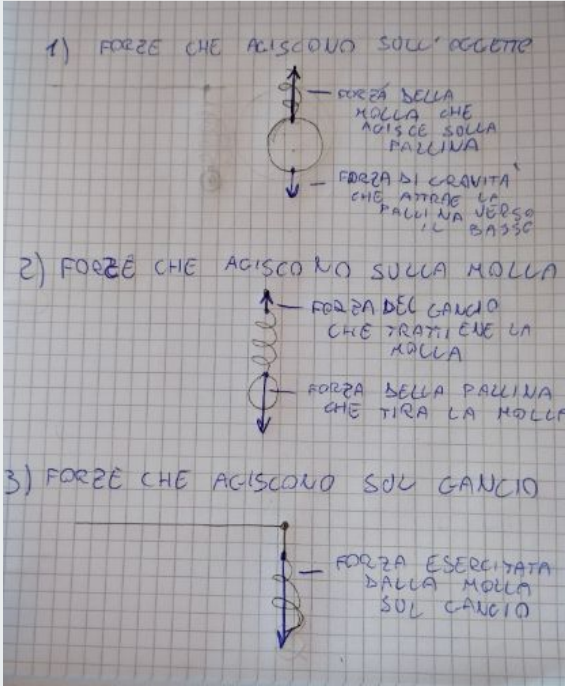 1) FORZE CHE AGISCONO SULL'OGGETTO
FORZA DELLA
MOLLA CHE
AGISCE SULLA
PALLINA
FORZA DI GRAVITÀ
CHE ATTRAE LA
PALLINA VERSO
IL BASSO
2) FORZE CHE AGISCONO SULLA MOLLA
FORZA DEL GANCIO
CHE TRATTIENE LA
MOLLA
FORZA DELLA PALLINA
CHE TIRA LA MOLLA
3) FORZE CHE AGISCONO SUL GANCIO
FORZA ESERCITATA
DALLA MOLLA
SUL GANCIO